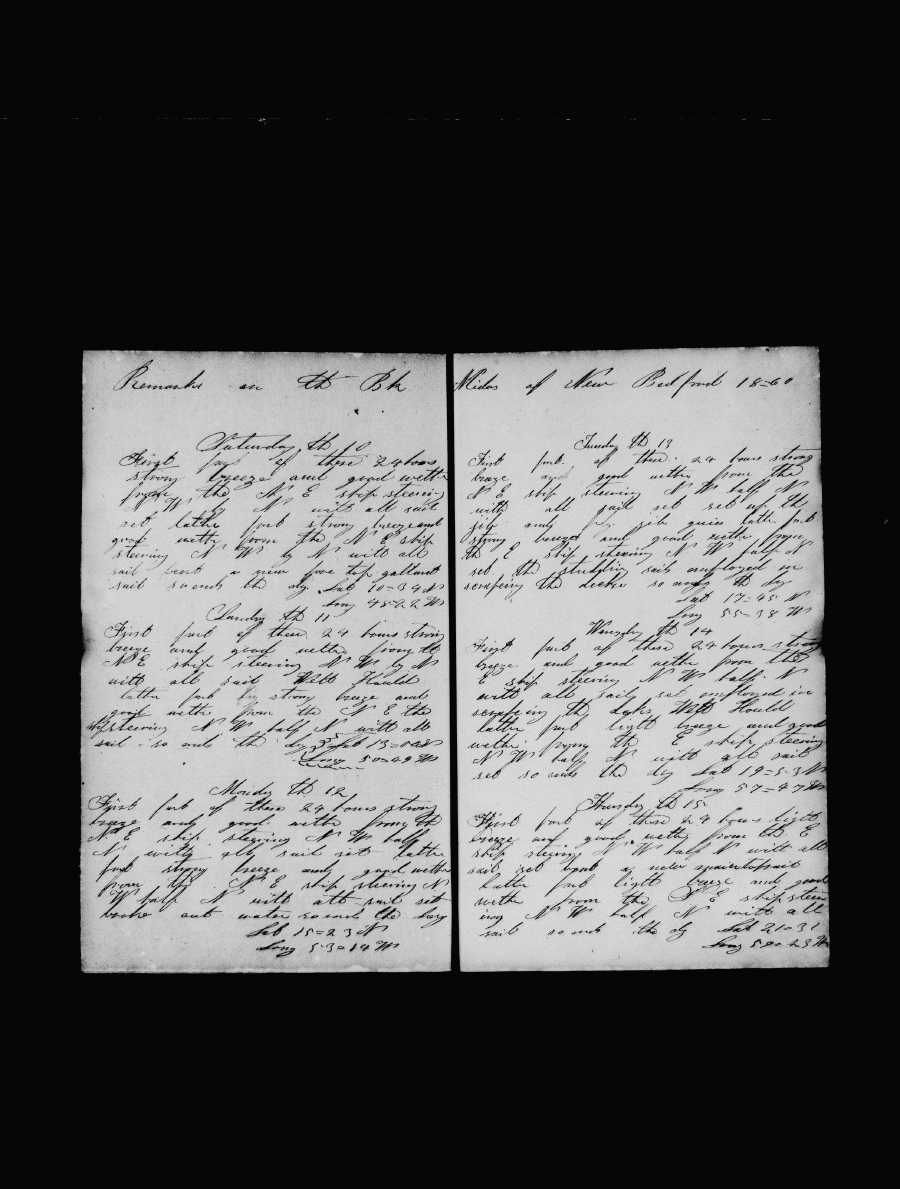 Remarks on th Bk Midas of New Bedford 18=60
Saturday th 10
First part of these 24 hours
strong breeze and good wethe
from the N E ship steering
N W by N with all sail
set latter part strong breeze and
good wethe from the N E ship
steering N W by N with all
sail bent a new fore top gallant
sail so ends the dy Lat 10=34 N
Long 48=22 W
Sunday th 11
First part of these 24 hours strong
breeze and good wethe from th
N E ship steering N W by N
with all sail
latter part strong breeze and
good wethe from the N E the
steering N W half N with all
sail so ends the dy Lat 13=00 N
Long 50=49 W
Monday th 12
First part of these 24 hours strong
breeze and good wethe from th
N E ship steering N W half
N with all sail set latter
part strong breeze and good wethe
from the N E ship steering N
W half N with all sail set
broke out water so ends the day
Lat 15=23 N
Long 53=14 W
Tuesday th 13
First part of these 24 hours strong
breze and good wethe from the
N E ship steering N W half N
with all sail set set up th
jib and fly jib guies latter part
strong breeze and good wethe from
th E ship steering N W half N
set the studding sail employed in
scrapeing the decks so ends th dy
Lat 17=45 N
Long 55=38 W
th 14
First part of these 24 hours strong
breeze and good wethe from the
E ship steering N W half N
with all sail set employed in
scrapeing th
latter part light breeze and good
wethe from the E ship steering
N W half N with all sail
set so ends the dy Lat 19=53 N
Long 57=47 W
Thursday th 15
First part of these 24 hours light
breeze and good wethe from th E
ship steering N W half N with all
sail set bent a new spankersail
latter part light breeze and good
wethe from the E ship steer
ing N W half N with all
sail so ends the dy Lat 21=31
Long 59=23 W